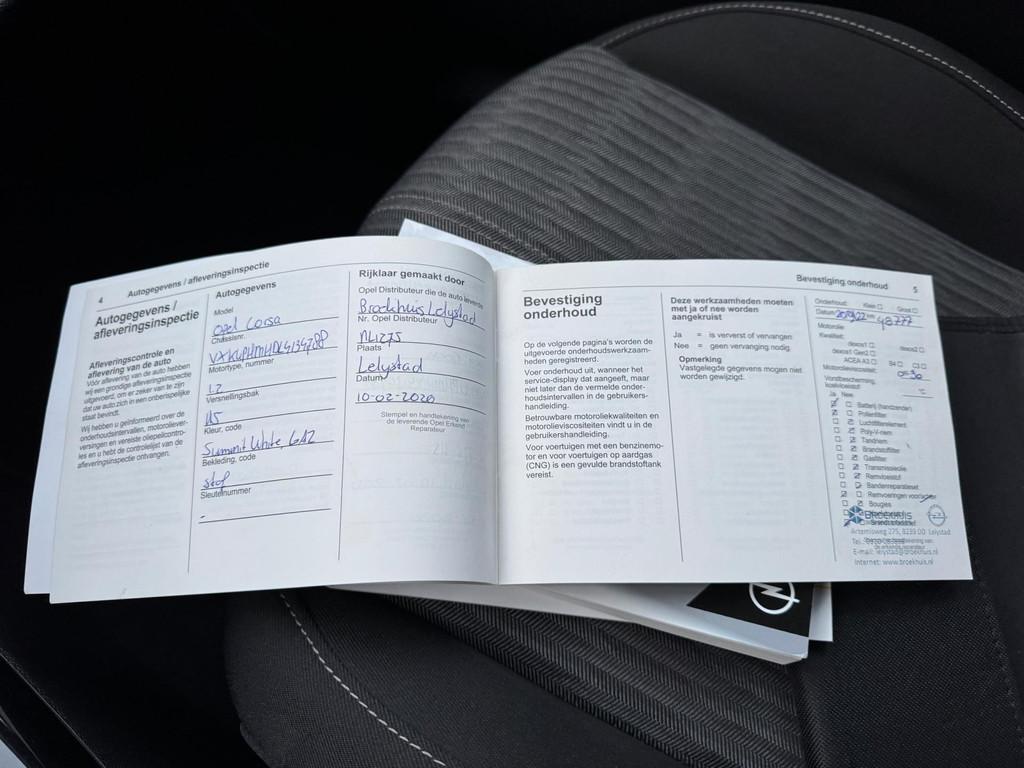 4
Autogegevens / afleveringsinspectie
Autogegevens /
afleveringsinspectie
Afleveringscontrole en
aflevering van de auto
Vóór aflevering van de auto hebben
wij een grondige afleveringsinspectie
uitgevoerd, om er zeker van te zijn
dat uw auto zich in een onberispelijke
staat bevindt.
Wij hebben u geïnformeerd over de
onderhoudsintervallen, motoroliever-
versingen en vereiste oliepeilcontro-
les en u hebt de controlelijst van de
afleveringsinspectie ontvangen.
Autogegevens
Model
Opel Corsa
Chassisnr.
Motortype, nummer
1.2
Versnellingsbak
Kleur, code
Summit White, GAZ
Bekleding, code
stof
Sleutelnummer
-
Rijklaar gemaakt door
Opel Distributeur die de auto leverde
Broekhuis Lelystad
Nr. Opel Distributeur
NL1275
Plaats
Lelystad
Datum
10-02-2020
Stempel en handtekening van
de leverende Opel Erkend
Reparateur
Bevestiging onderhoud
5
Bevestiging
onderhoud
Op de volgende pagina's worden de
uitgevoerde onderhoudswerkzaam-
heden geregistreerd.
Voer onderhoud uit, wanneer het
service-display dat aangeeft, maar
niet later dan de vermelde onder-
houdsintervallen in de gebruikers-
handleiding.
Betrouwbare motoroliekwaliteiten en
motorolieviscositeiten vindt u in de
gebruikershandleiding.
Voor voertuigen met een benzinemo-
tor en voor voertuigen op aardgas
(CNG) is een gevulde brandstoftank
vereist.
Deze werkzaamheden moeten
met ja of nee worden
aangekruist
Ja = is ververst of vervangen
Nee = geen vervanging nodig
Opmerking
Vastgelegde gegevens mogen niet
worden gewijzigd.
Onderhoud: Klein Groot
Datum km 48777
Motorolie
Kwaliteit:
dexos1 dexos2
dexos1 Gen2
ACEA A3 B4 C3
Motorolieviscositeit:
Vorstbescherming,
koelvloeistof °C
Ja Nee
Batterij (handzender)
Pollenfilter
Luchtfilterelement
Poly-V-riem
Tandriem
Brandstoffilter
Gasfilter
Transmissieolie
Remvloeistof
Bandenreparatieset
Remvoeringen voor/achter
Bougies
BROEKHUIS
Artemisweg 275, 8239 DD Lelystad
E-mail: lelystad@broekhuis.nl
Internet: www.broekhuis.nl